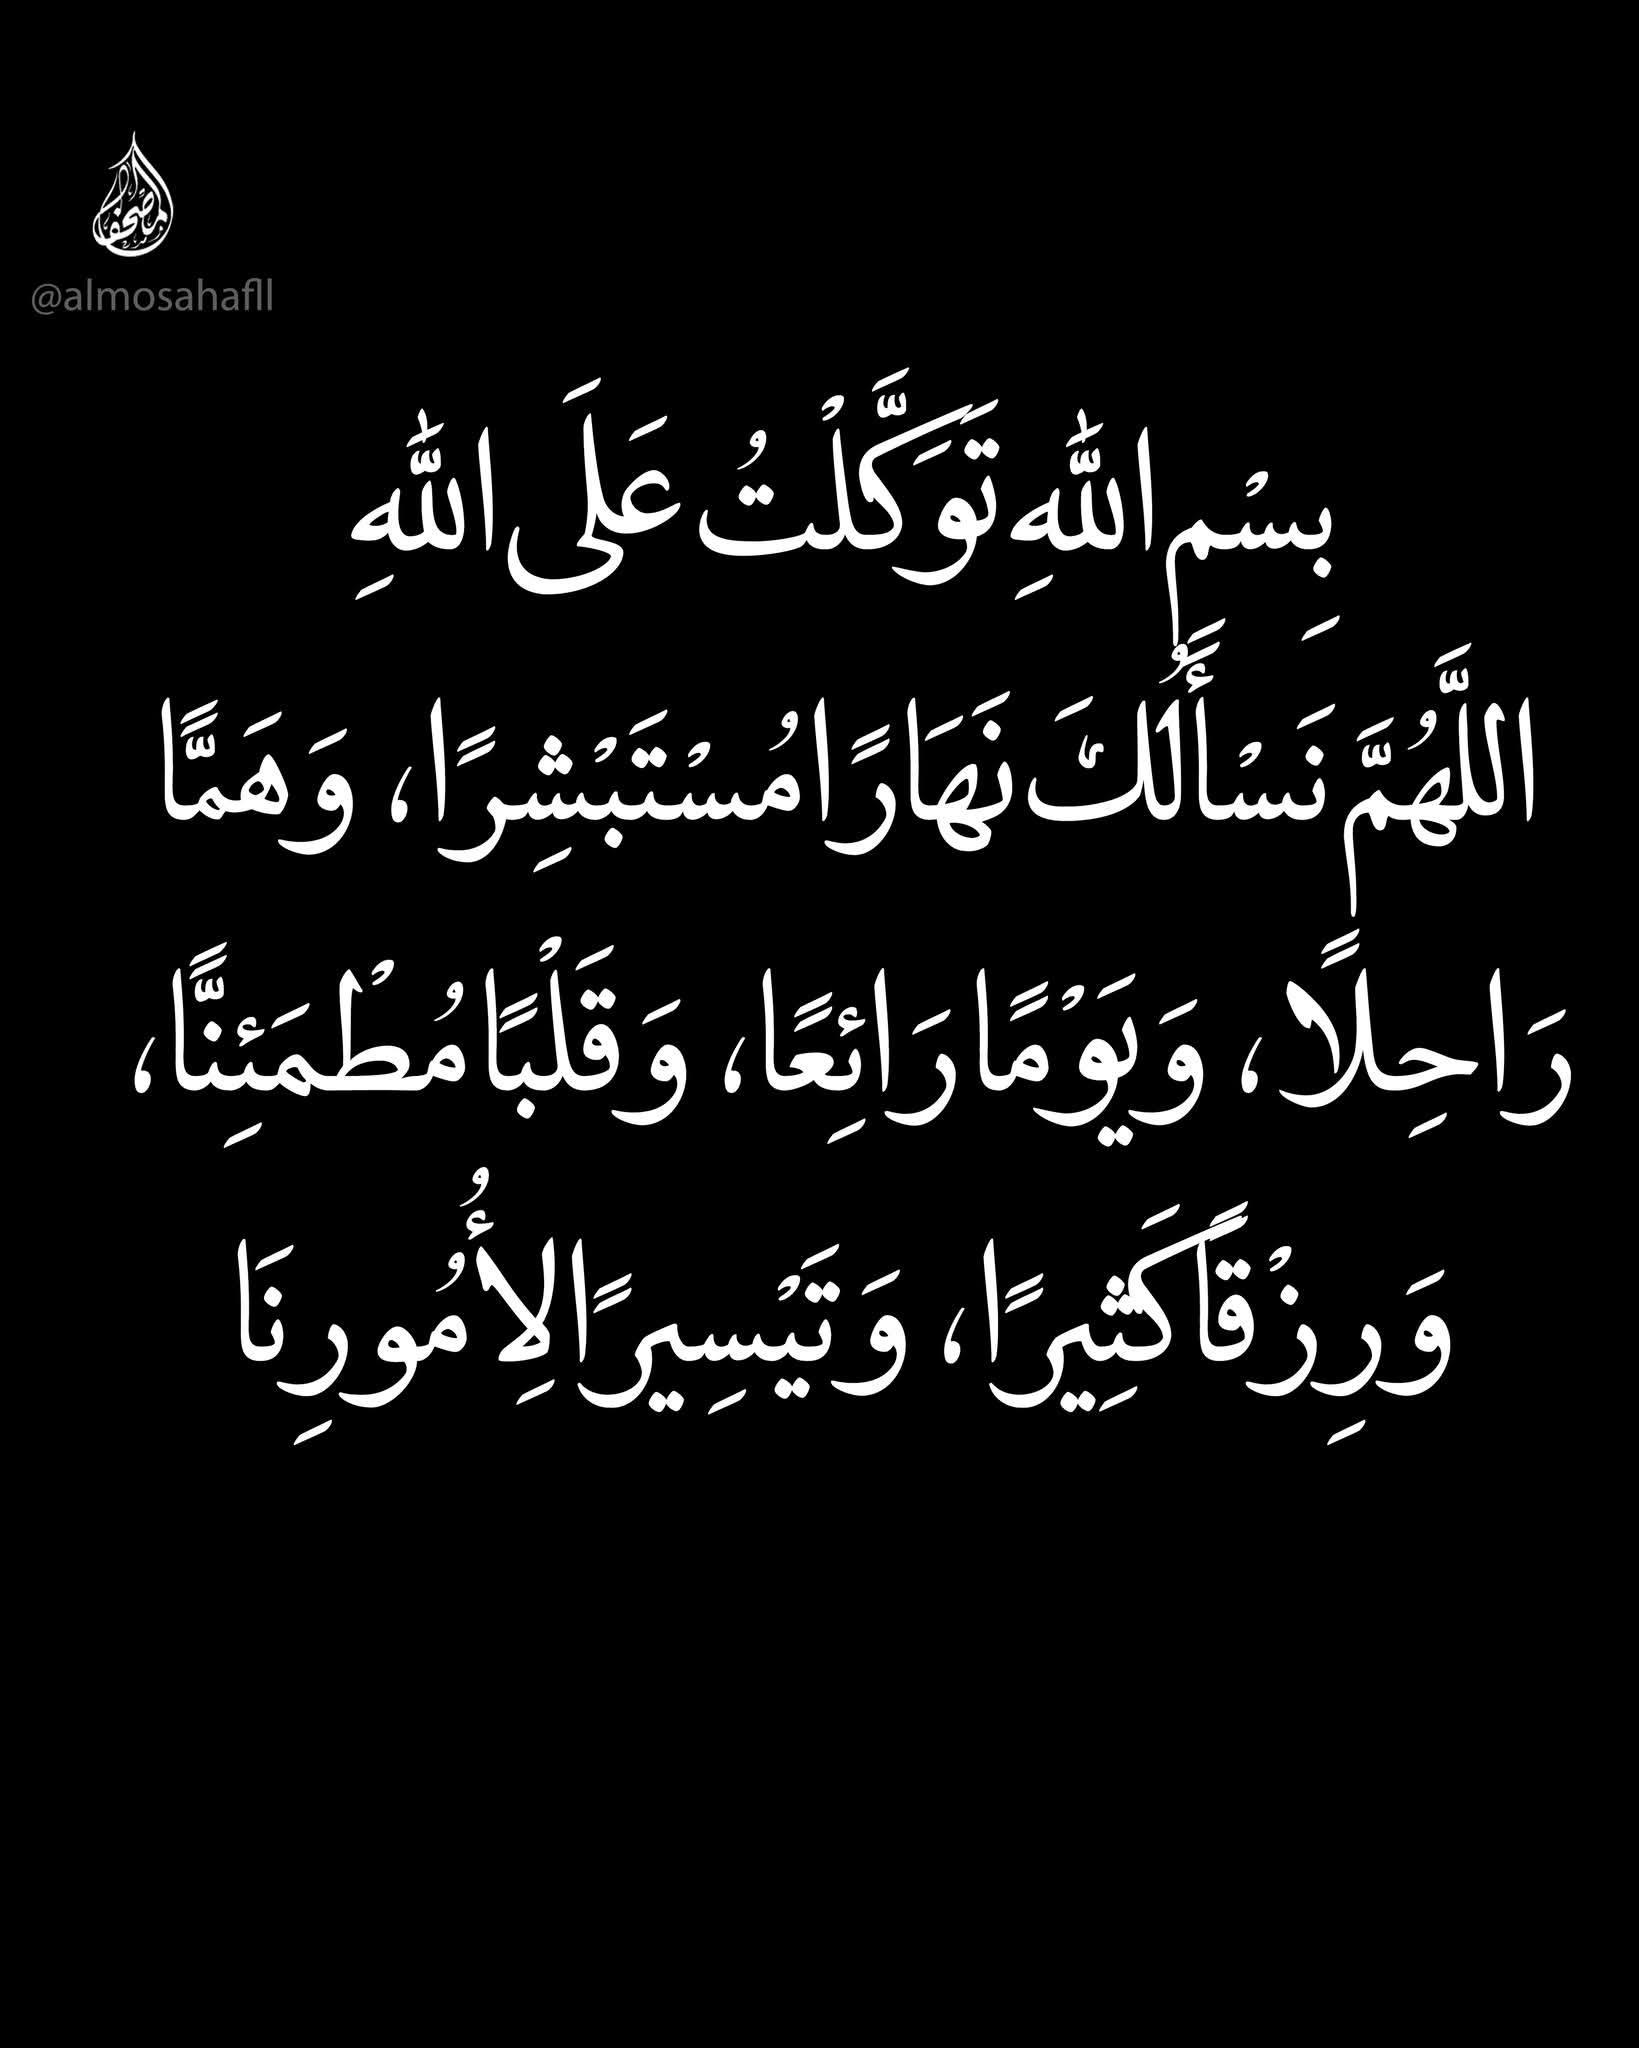 @almosahafll
بِسْمِ اللَّهِ تَوَكَّلْتُ عَلَى اللَّهِ
اللَّهُمَّ نَسْأَلُكَ نَهَارًا مُسْتَبْشِرًا، وَهَمًّا
رَاحِلًا، وَيَوْمًا رَائِعًا، وَقَلْبًا مُطْمَئِنًّا،
وَرِزْقًا كَثِيرًا، وَتَيْسِيرًا لِأُمُورِنَا